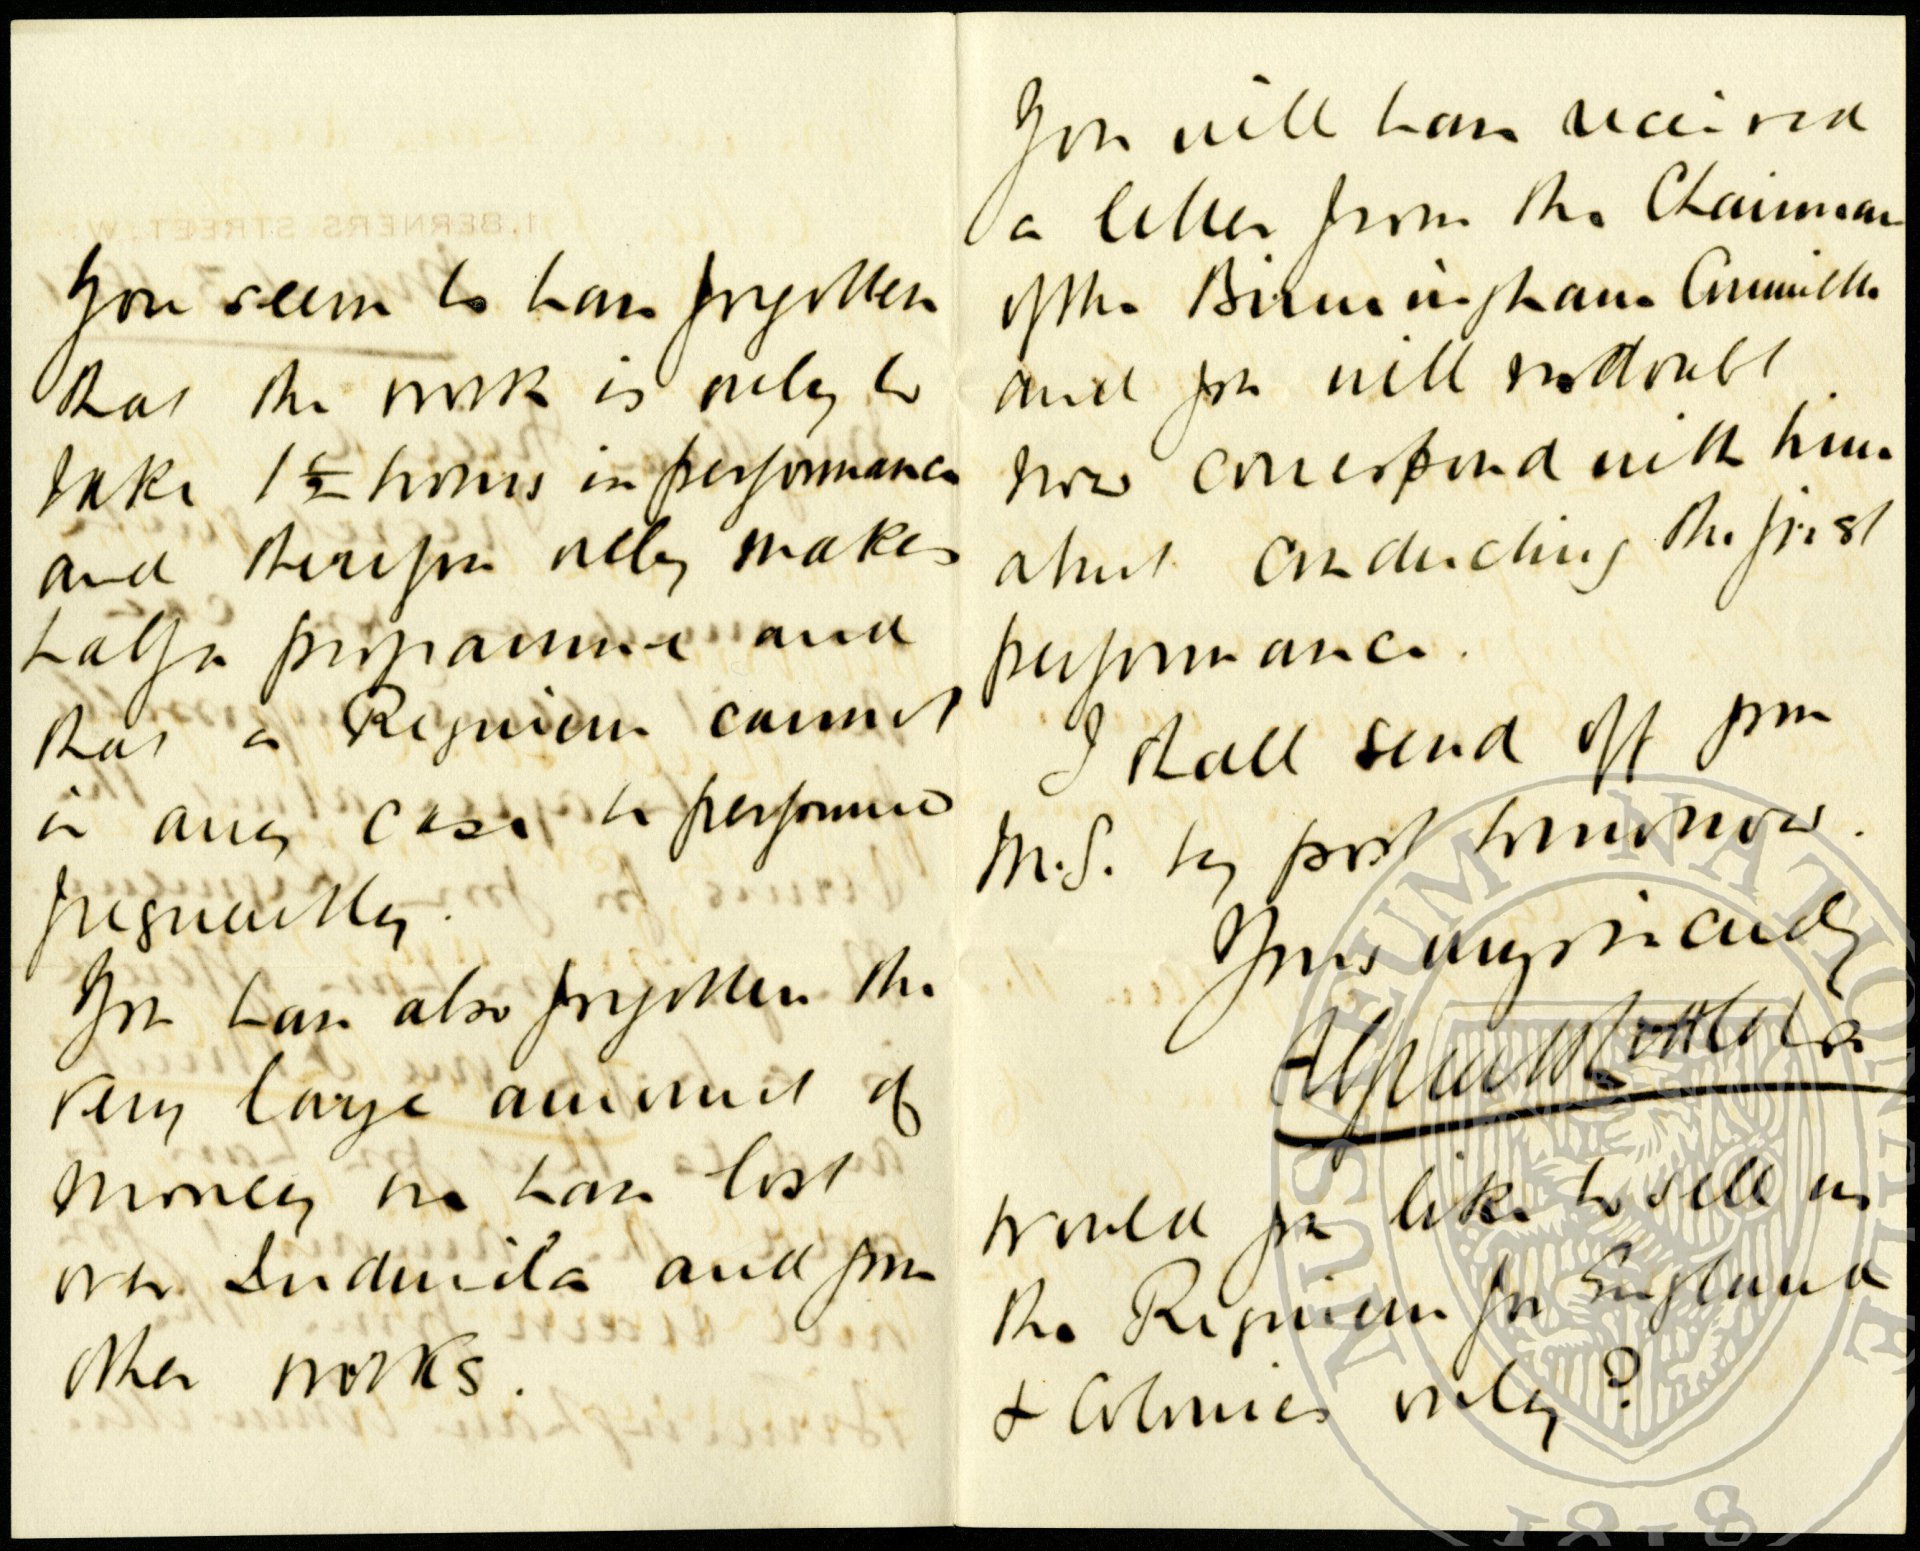 You seem to have forgotten
that the work is only to
take 1½ hours in performance
and therefore only makes
half a programme and
that a Requiem cannot
in any case be performed
frequently.
You have also forgotten the
very large amount of
money we have lost
over Ludmila and your
other works.
You will have received
a letter from the Chairman
of the Birmingham Committee
and you will no doubt
now correspond with him
about conducting the first
performance.
I shall send off your
M.S. by post tomorrow.
Yours very sincerely
Alfred H Littleton
Would you like to sell us
the Requiem for England
& Colonies only?
1. BERNERS STREET, W.
MUSEUM NATIONALE
1818